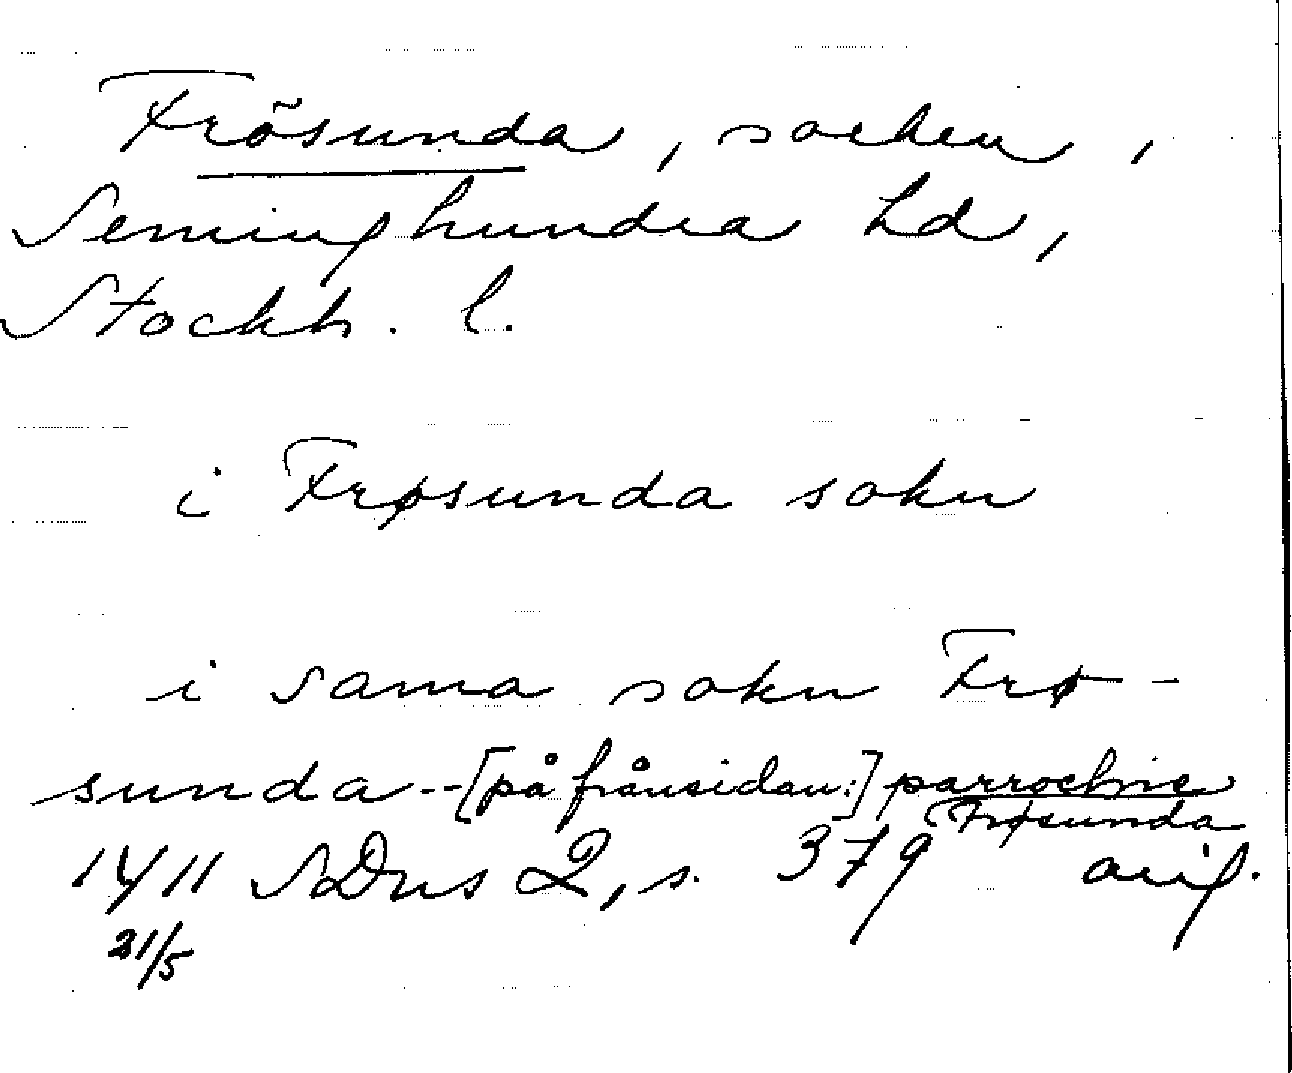 Frösunda, socken,
Seminghundra hd,
Stockh. l.
i Frøsunda sokn
i sama sokn Frø-
sunda -- [på frånsidan:] parrochie
Frøsunda
1411 SDns 2, s. 379 avs.
21/5